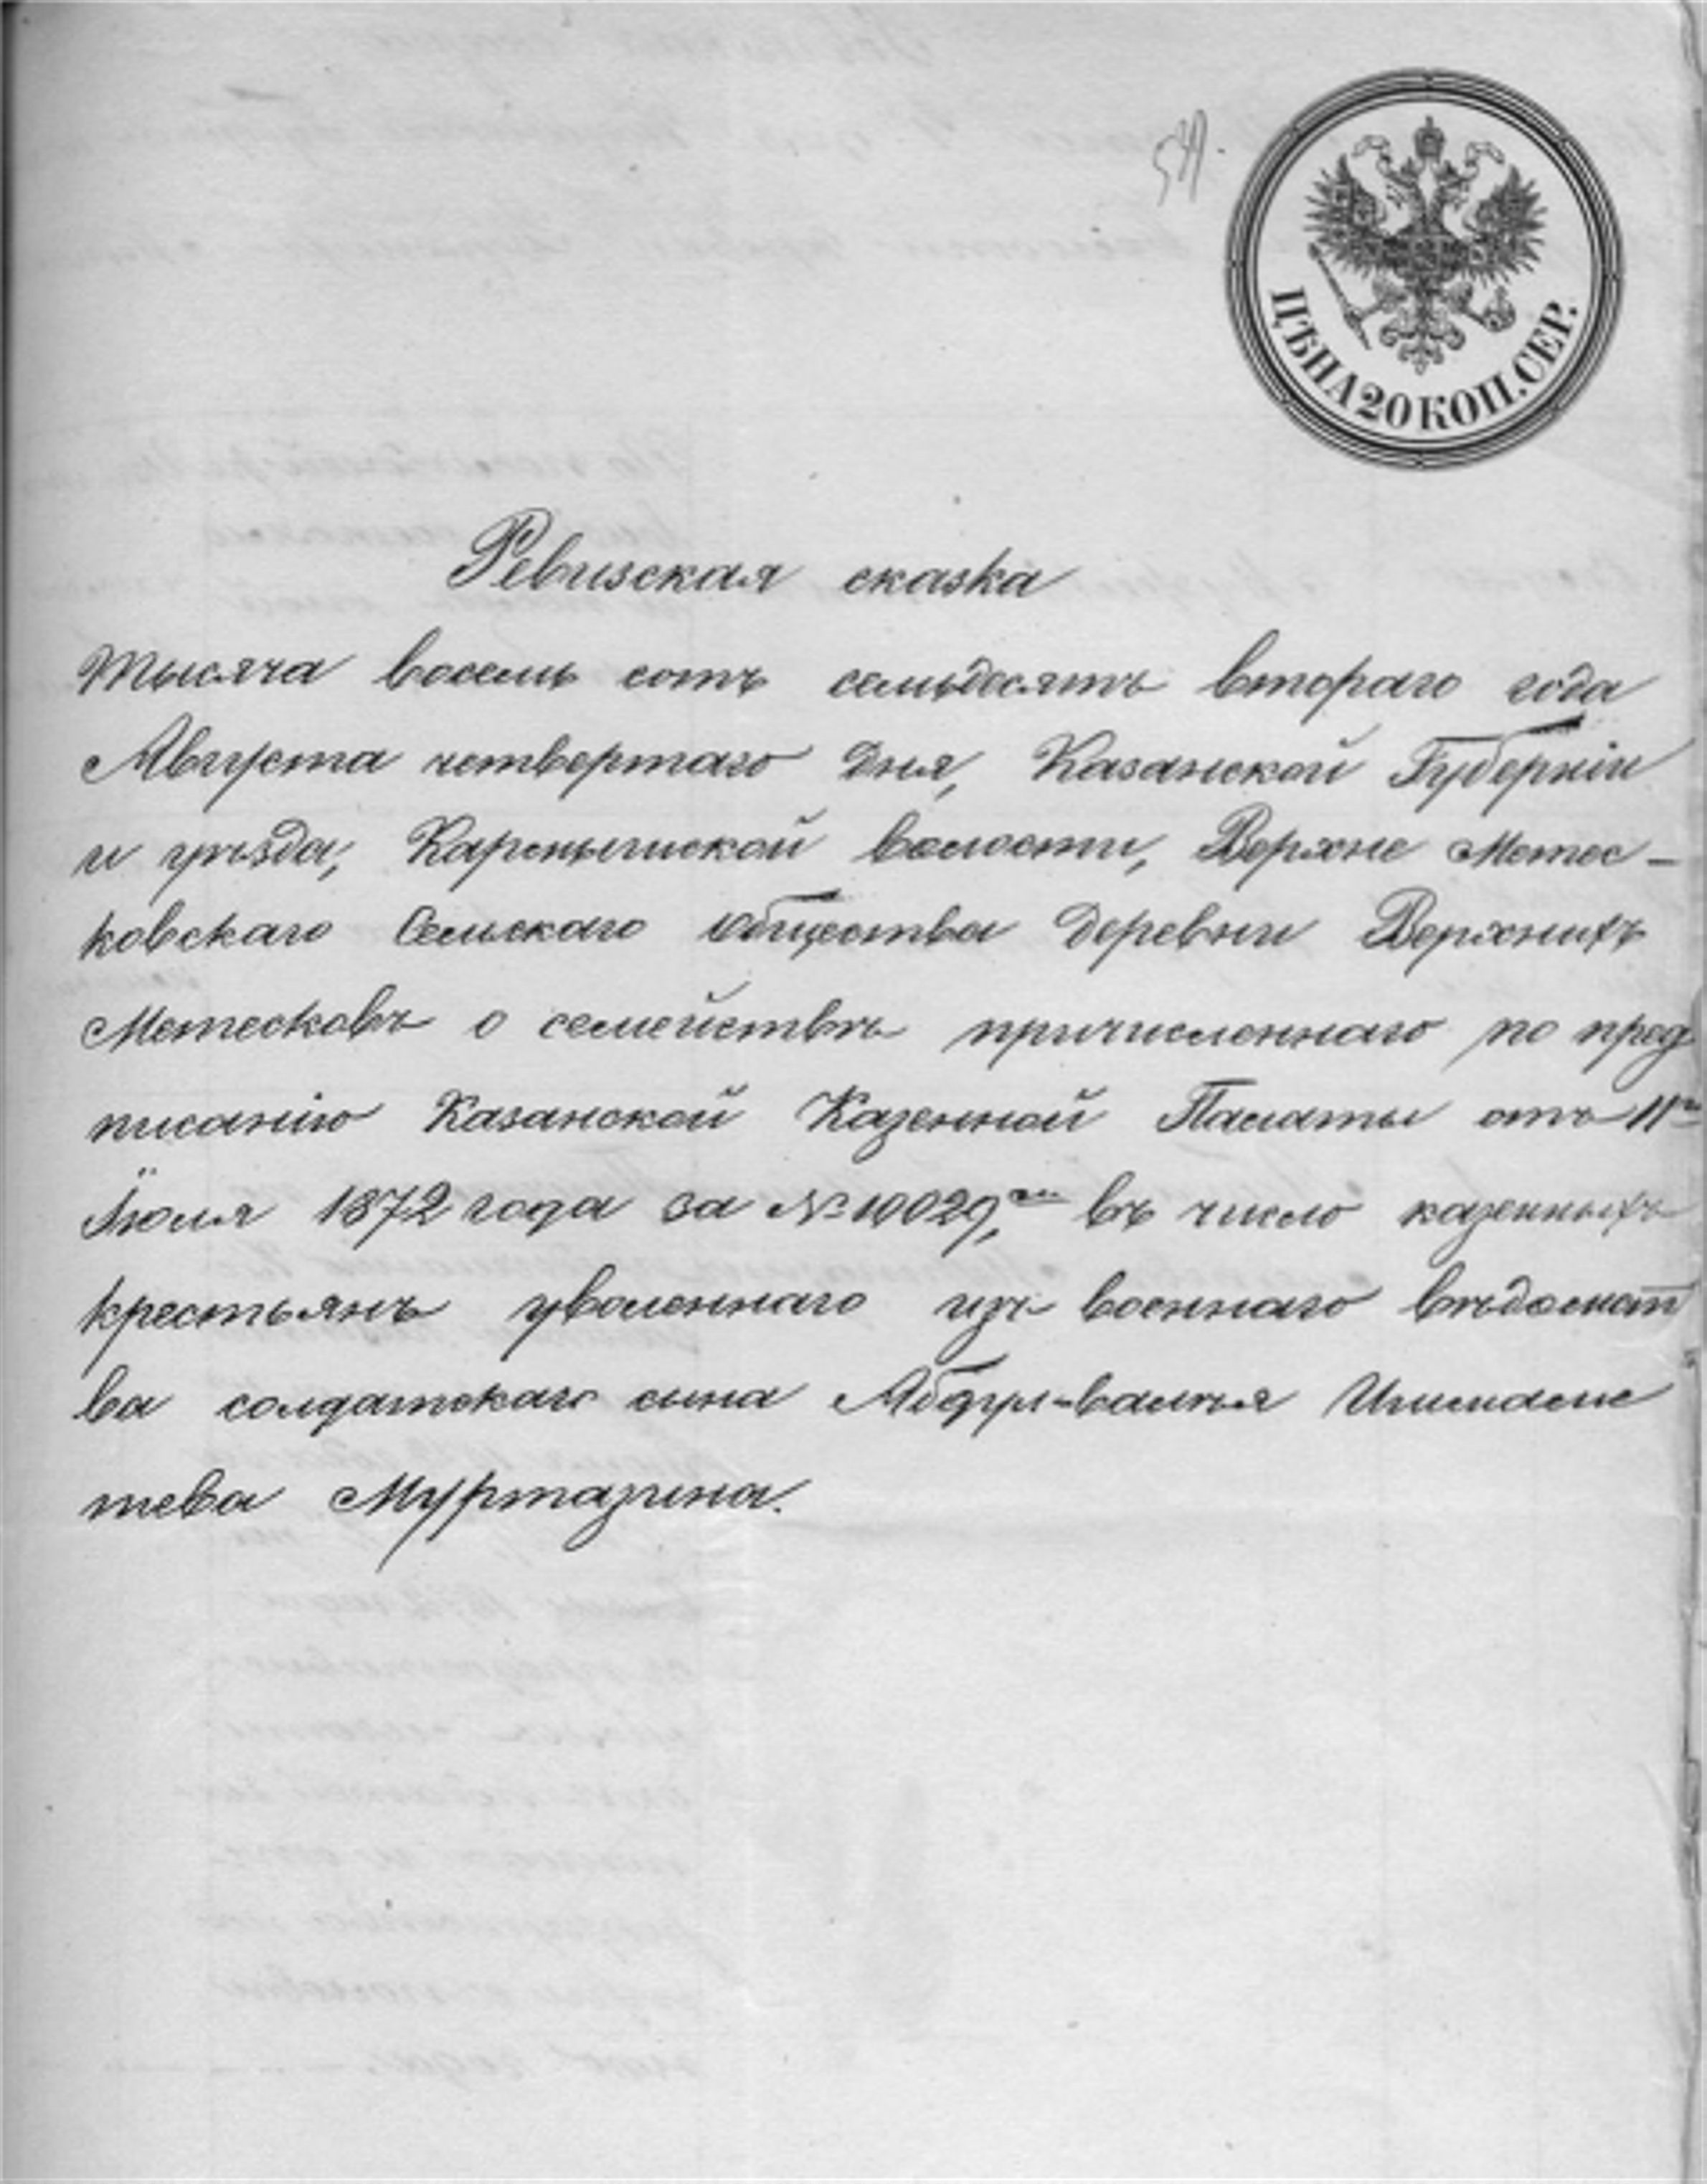 541.
ЦѢНА 20 КОП. СЕР.
Ревизская сказка
Тысяча восемь сотъ семьдесятъ втораго года
Августа четвертаго дня, Казанской Губерніи
и уѣзда, волости, Верхне Метес-
ковскаго Сельскаго общества деревни Верхнихъ
Метесковъ о семействѣ причисленнаго по пред
писанію Казанской Казенной Палаты отъ 11го
Іюля 1872 года за № 10029,мъ въ число казенныхъ
крестьянъ уволеннаго изъ военнаго вѣдомст
ва солдатскаго сына Абдул-валѣя Ишмаме
тева Муртазина.